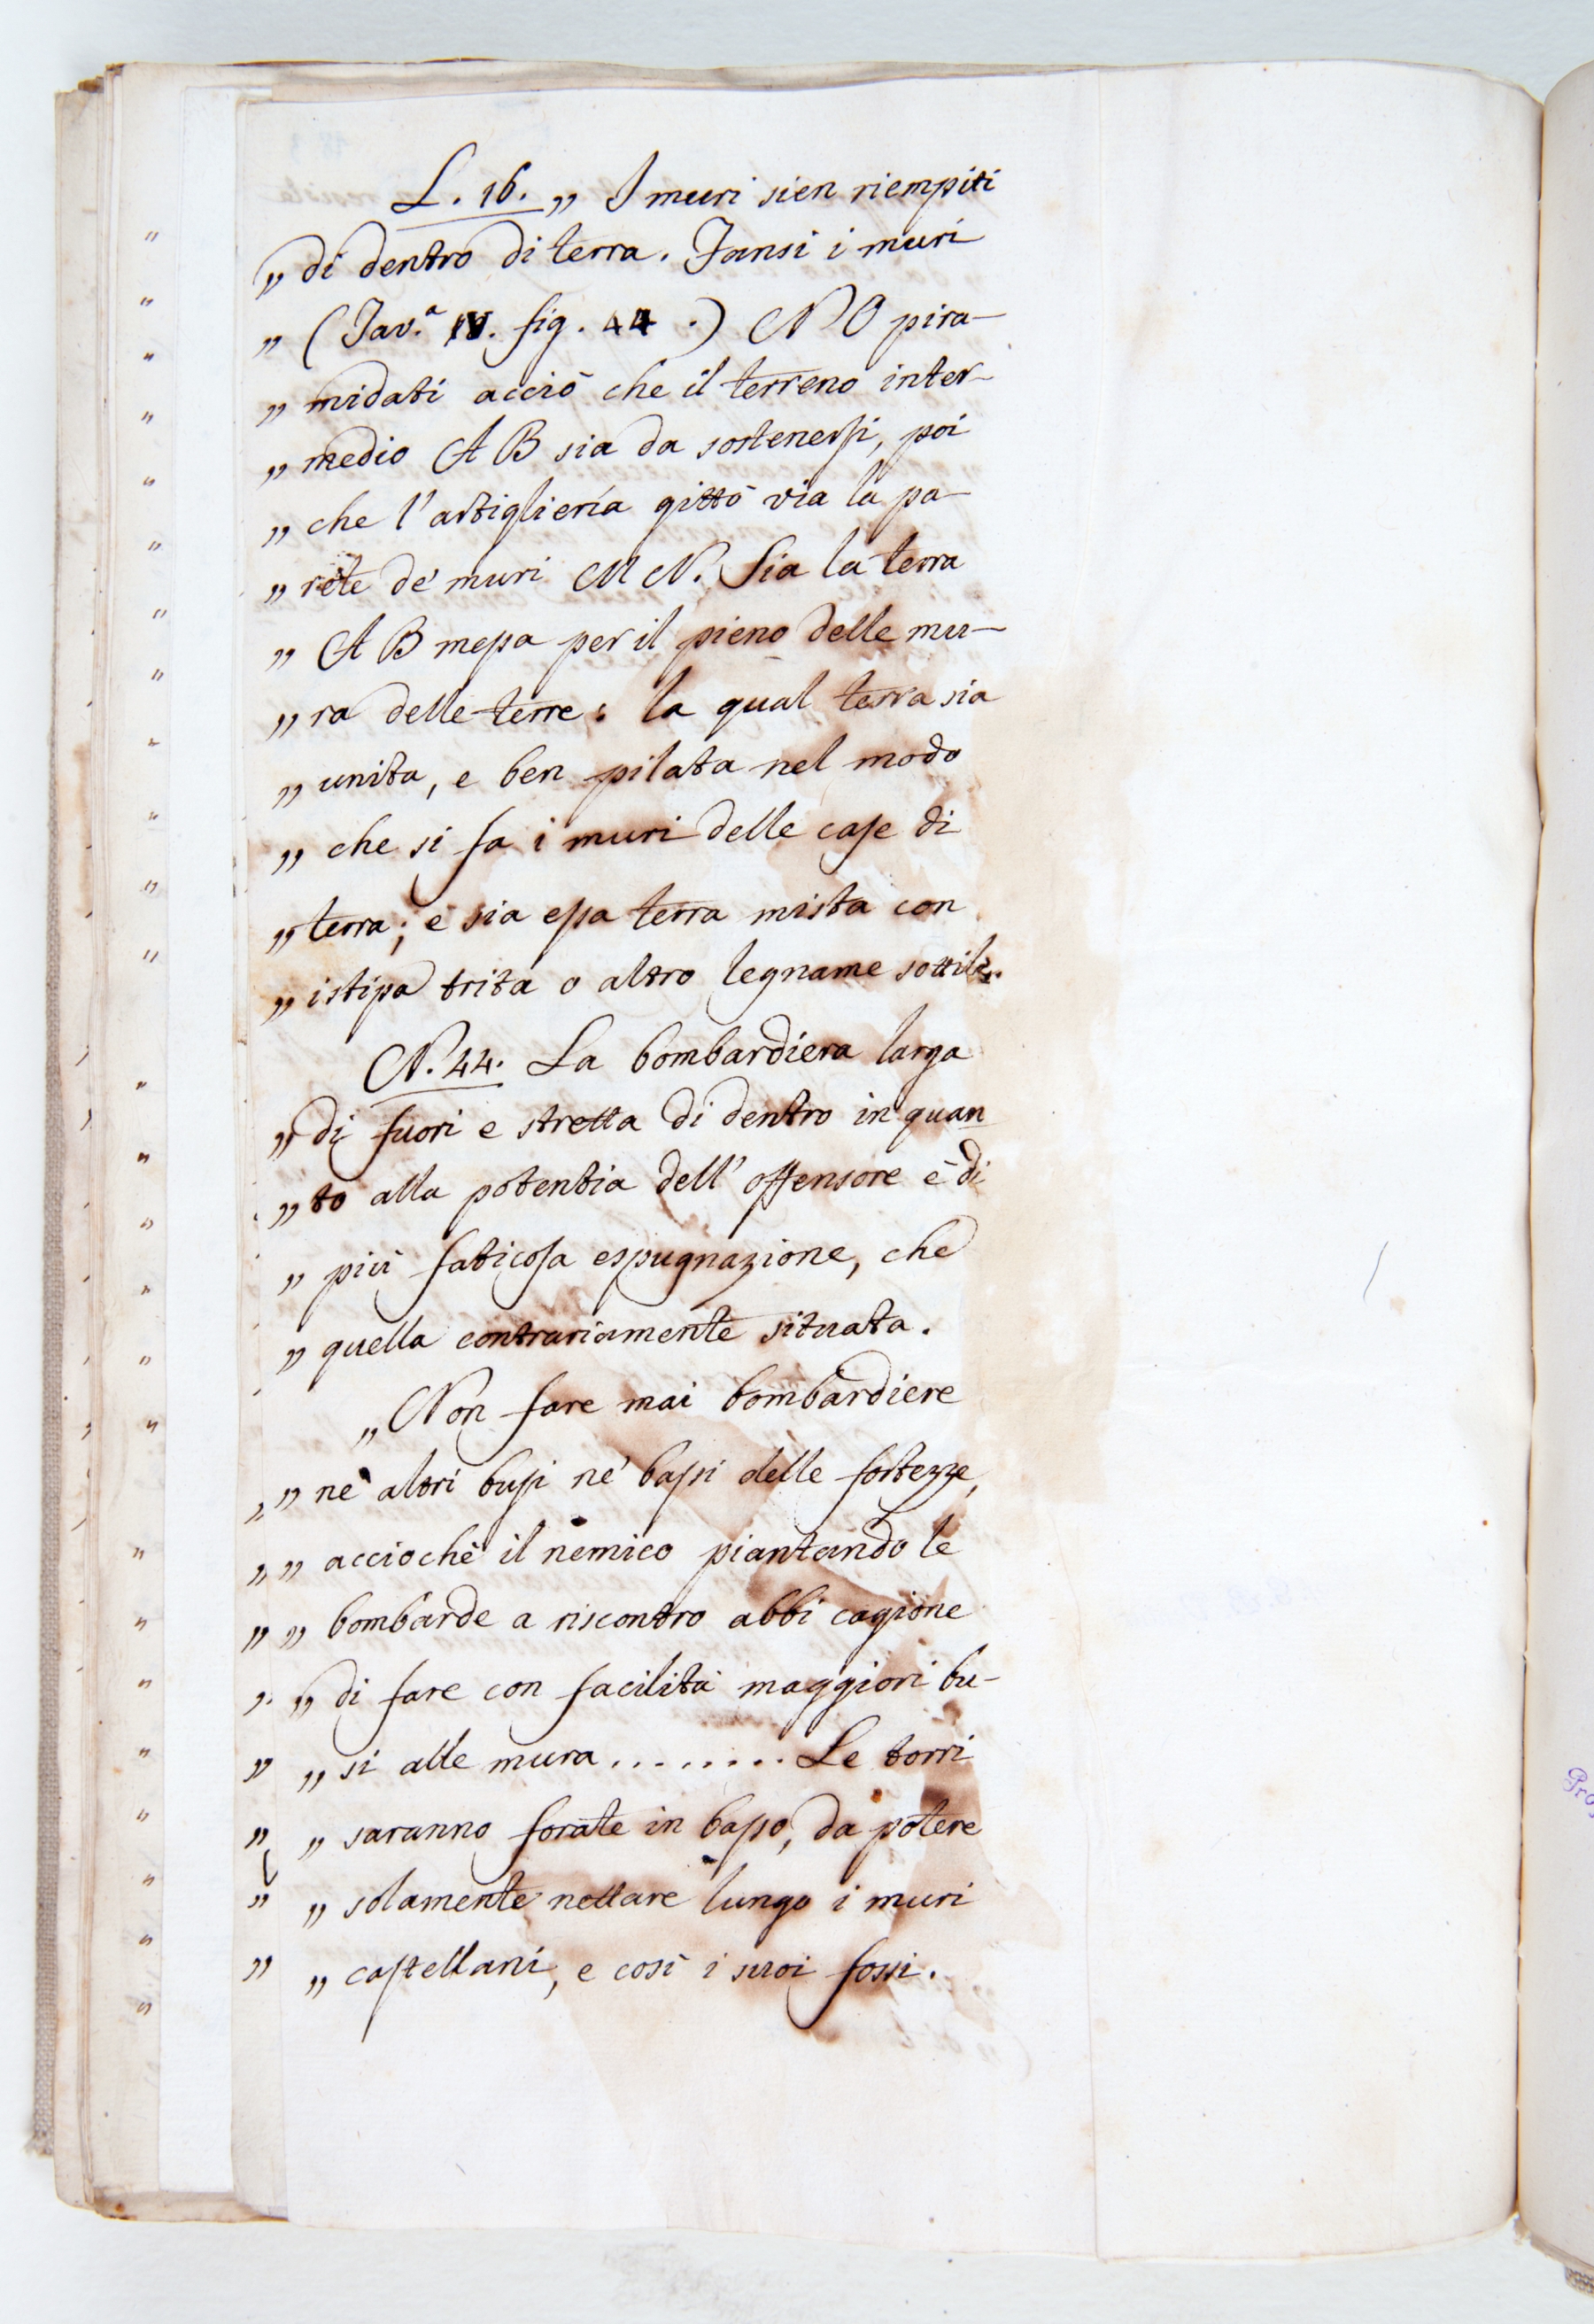 L. 16. „ I muri sien riempiti
„ di dentro di terra. Fansi i muri
„ (Tav.ª IV. fig. 44.) N O pira-
„ midati acciò che il terreno inter-
„ medio A B sia da sostenersi, poi
„ che l'artiglieria gittò via la pa-
„ rete de' muri M N. Sia la terra
„ A B messa per il pieno delle mu-
„ ra delle terre: la qual terra sia
„ unita, e ben pilata nel modo
„ che si fa i muri delle case di
„ terra; e sia essa terra mista con
„ istipa trita o altro legname sottile.
N. 44. La bombardiera larga
„ di fuori e stretta di dentro in quan
„ to alla potentia dell' offensore è di
„ più faticosa espugnazione, che
„ quella contrariamente situata.
„ Non fare mai bombardiere
„ „ nè altri busi ne' bassi delle fortezze,
„ „ acciochè il nemico piantando le
„ „ bombarde a riscontro abbi cagione
„ „ di fare con facilità maggiori bu-
„ „ si alle mura ........ Le torri
„ „ saranno forate in basso, da potere
„ „ solamente nettare lungo i muri
„ „ castellani, e così i suoi fossi.